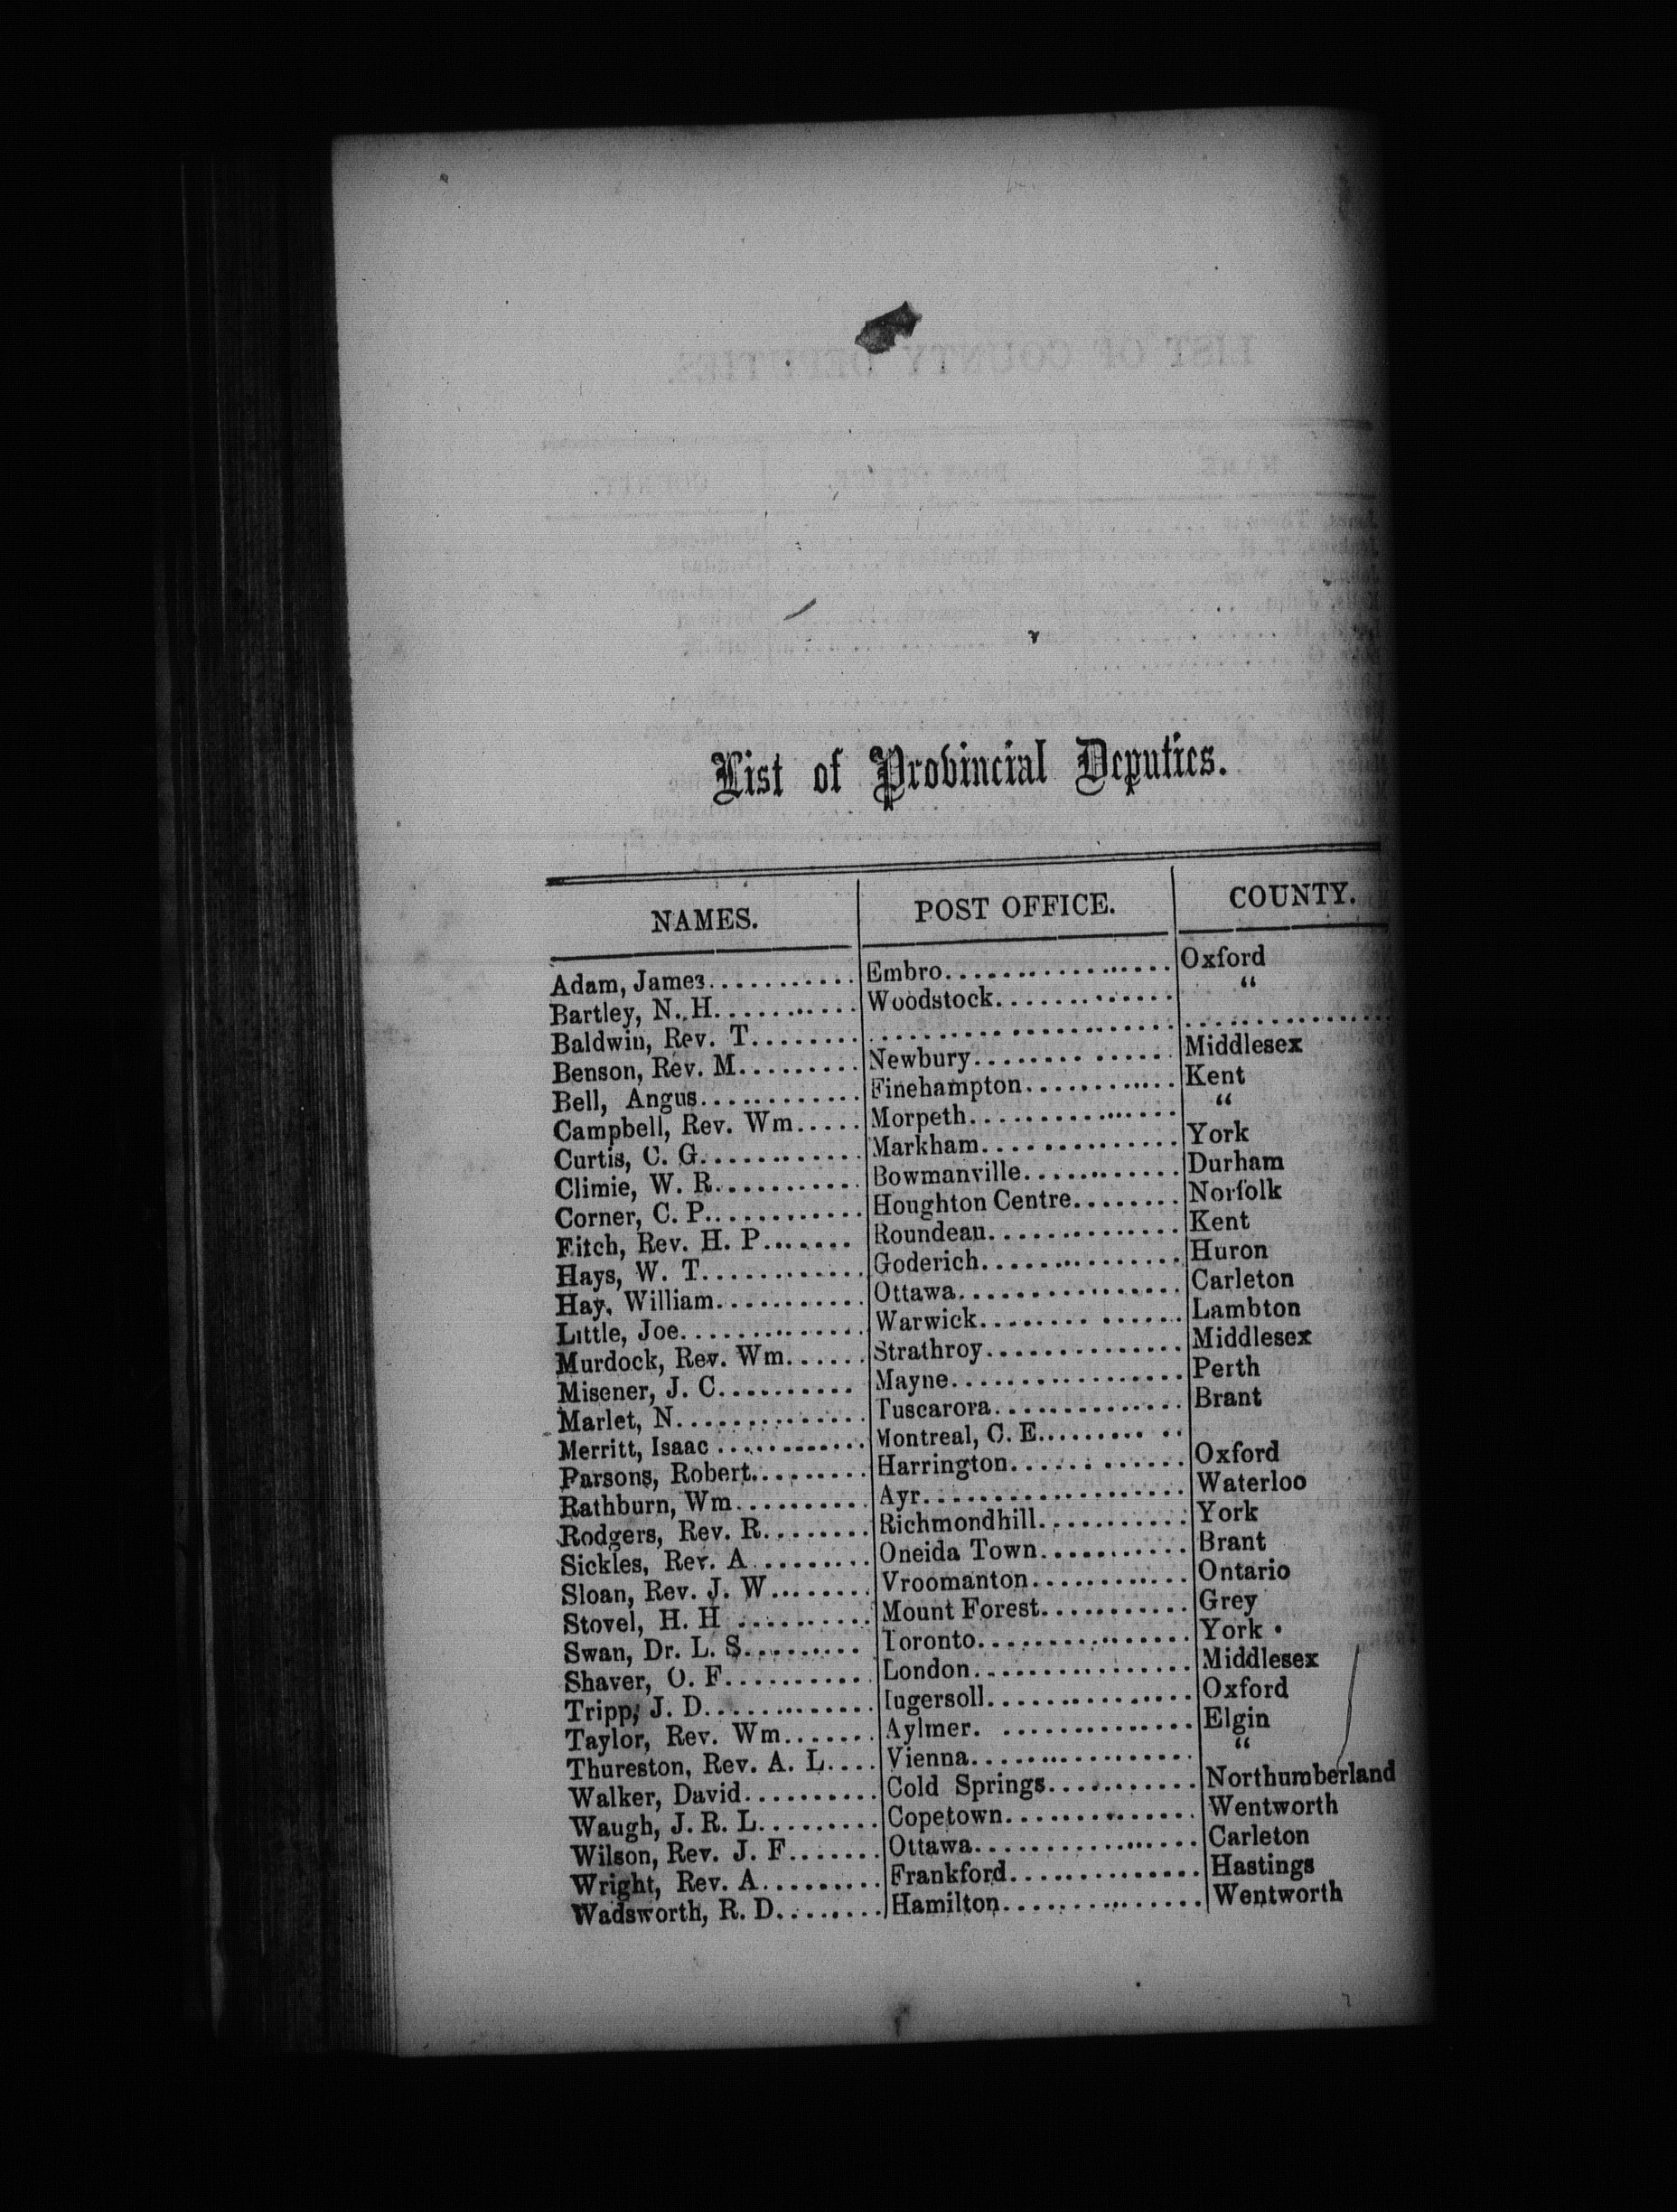 List of Provincial Deputies.
NAMES. POST OFFICE. COUNTY.
Adam, James........... Embro................ Oxford
Bartley, N. H.......... Woodstock............. “
Baldwin, Rev. T........ ...................... ...............
Benson, Rev. M......... Newbury.............. Middlesex
Bell, Angus............ Finehampton........... Kent
Campbell, Rev. Wm..... Morpeth.............. “
Curtis, C. G............ Markham.............. York
Climie, W. R........... Bowmanville........... Durham
Corner, C. P............ Houghton Centre........ Norfolk
Fitch, Rev. H. P....... Roundeau.............. Kent
Hays, W. T............ Goderich.............. Huron
Hay, William........... Ottawa................ Carleton
Little, Joe.............. Warwick.............. Lambton
Murdock, Rev. Wm...... Strathroy.............. Middlesex
Misener, J. C.......... Mayne................. Perth
Marlet, N.............. Tuscarora.............. Brant
Merritt, Isaac ............ Montreal, C. E...........
Parsons, Robert......... Harrington............ Oxford
Rathburn, Wm.......... Ayr.................... Waterloo
Rodgers, Rev. R........ Richmondhill........... York
Sickles, Rev. A ......... Oneida Town........... Brant
Sloan, Rev. J. W....... Vroomanton........... Ontario
Stovel, H. H .......... Mount Forest........... Grey
Swan, Dr. L. S......... Toronto............... York
Shaver, O. F........... London................ Middlesex
Tripp, J. D............ Ingersoll............... Oxford
Taylor, Rev. Wm....... Aylmer. .............. Elgin
Thureston, Rev. A. L.... Vienna................ “
Walker, David.......... Cold Springs............ Northumberland
Waugh, J. R. L......... Copetown.............. Wentworth
Wilson, Rev. J. F....... Ottawa................ Carleton
Wright, Rev. A......... Frankford.............. Hastings
Wadsworth, R. D........ Hamilton.............. Wentworth